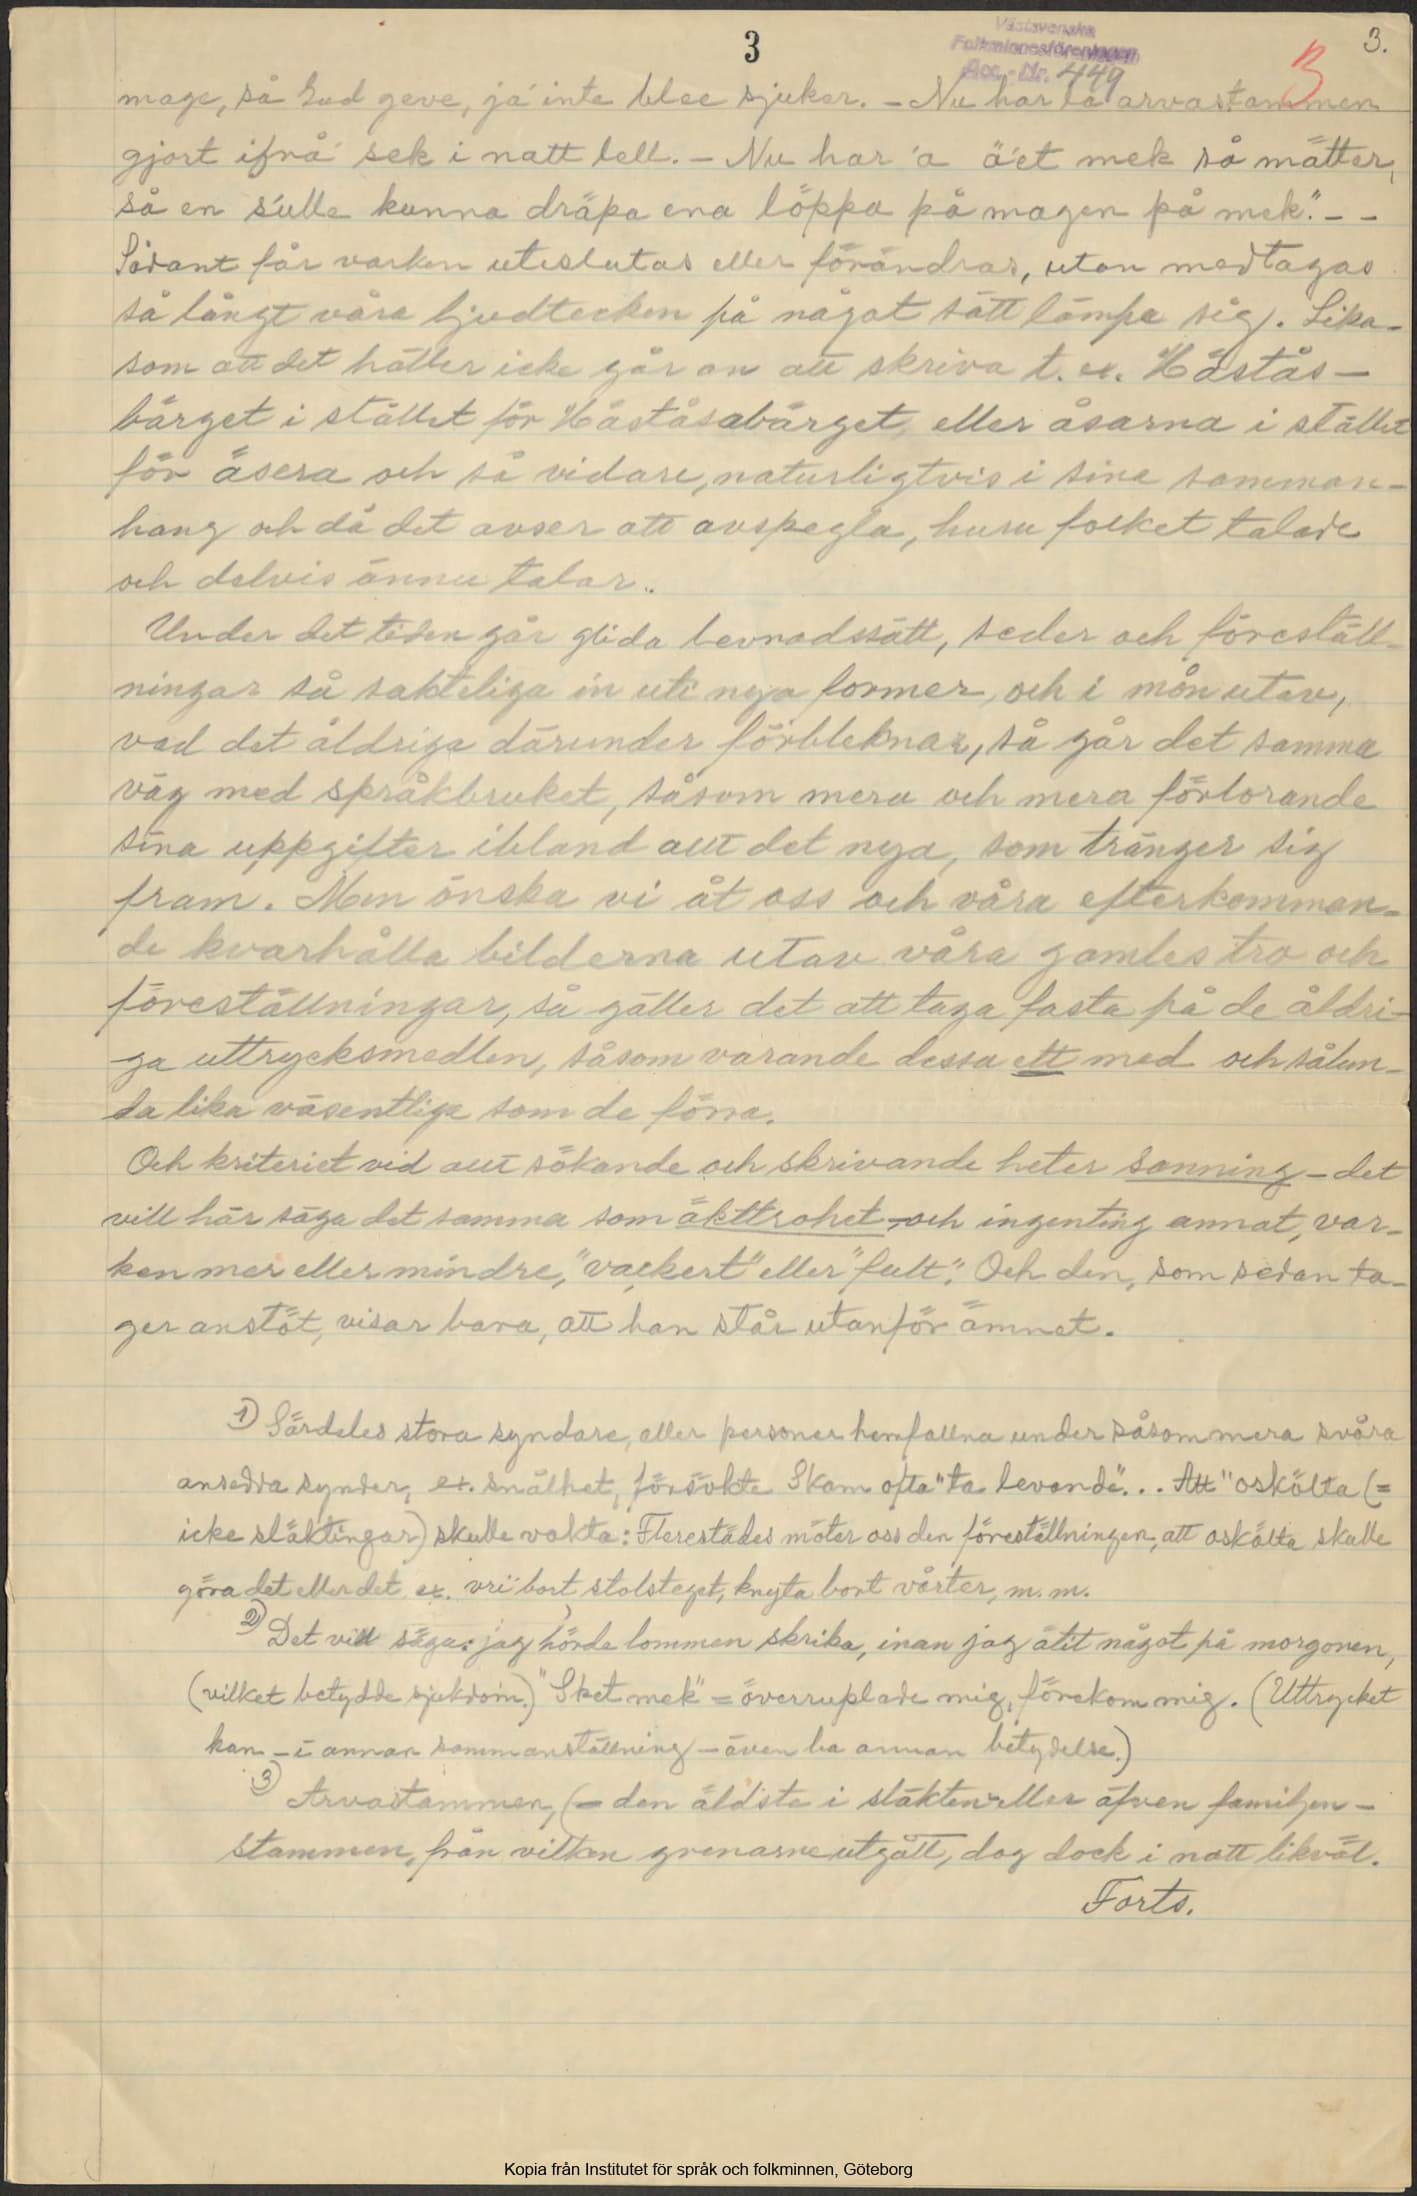 3
3.
3
Västsvenska
Folkminnesföreningen
Acc.-Nr. 449
mage, så Gud geve, ja' inte blee sjuker. – Nu har la arvastammen
gjort ifrå' sek i natt lell. – Nu har 'a ä'et mek så mätter,
så en s'ulle kunna dräpa ena löppa på magen på mek." – –
Sådant får varken uteslutas eller förändras, utan medtagas
så långt våra ljudtecken på något sätt lämpa sig. Lika-
som att det häller icke går an att skriva t. ex. Hästås-
bärget i stället för Häståsabärget, eller åsarna i stället
för åsera och så vidare, naturligtvis i sina samman-
hang och då det avser att avspegla, huru folket talade
och delvis ännu talar.
Under det tiden går glida levnadssätt, seder och föreställ-
ningar så sakteliga in uti nya former, och i mån utav,
vad det åldriga därunder förbleknar, så går det samma
väg med språkbruket, såsom mera och mera förlorande
sina uppgifter ibland allt det nya, som tränger sig
fram. Men önska vi åt oss och våra efterkomman-
de kvarhålla bilderna utav våra gamles tro och
föreställningar, så gäller det att taga fasta på de åldri-
ga uttrycksmedlen, såsom varande dessa ett med och sålun-
da lika väsentliga som de förra.
Och kriteriet vid allt sökande och skrivande heter sanning – det
vill här säga det samma som äkttrohet – och ingenting annat, var-
ken mer eller mindre, "vackert" eller "fult". Och den, som sedan ta-
ger anstöt, visar bara, att han står utanför ämnet.
1) Särdeles stora syndare, eller personer hemfallna under såsom mera svåra
ansedda synder, ex. snålhet, försökte Skam ofta "ta levande"... Att "oskölta (=
icke släktingar) skulle vakta: Flerestädes möter oss den föreställningen, att oskölta skulle
göra det eller det, ex. vri' bort stolsteget, knyta bort vårter, m. m.
2) Det vill säga: jag hörde lommen skrika, inan jag ätit något på morgonen,
(vilket betydde sjukdom.) "Sket mek" = överrumplade mig, förekom mig. (Uttrycket
kan – i annan sammanställning – även ha annan betydelse.)
3) Arvastammen, (= den äldste i släkten eller äfven familjen –
stammen, från vilken grenarne utgått, dog dock i natt likväl.
Forts.
Kopia från Institutet för språk och folkminnen, Göteborg